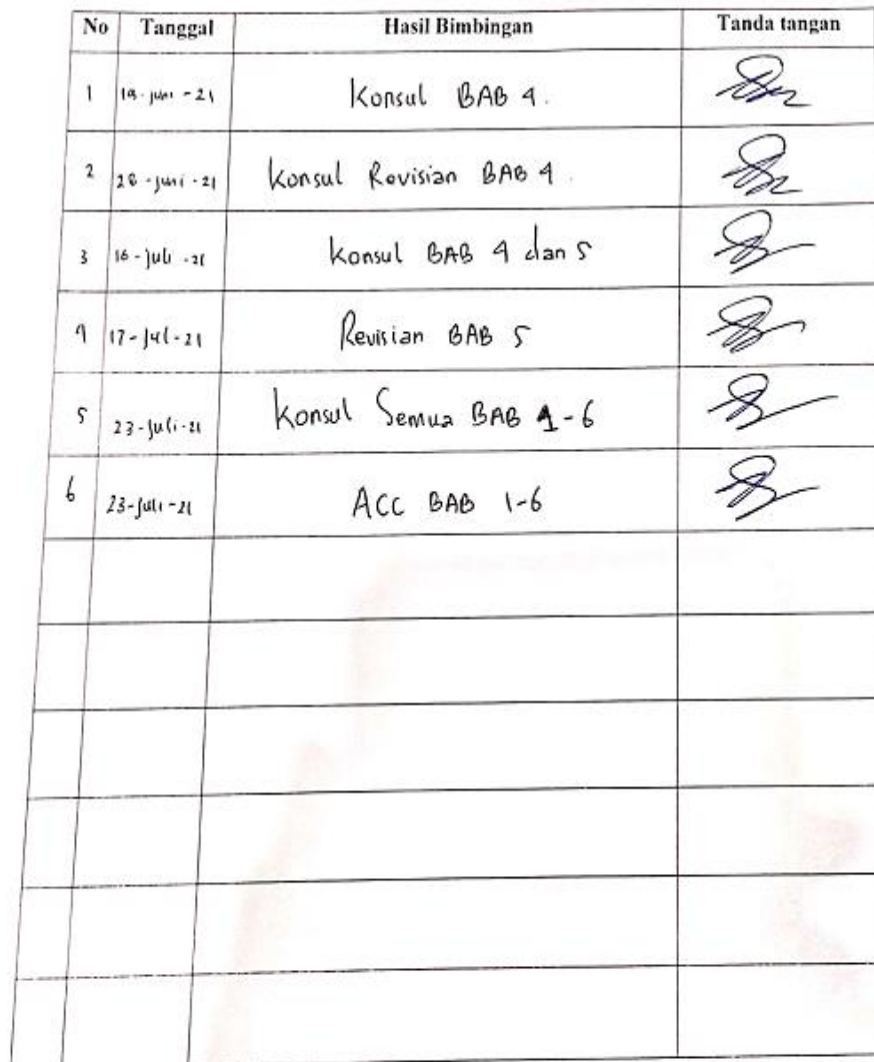 No Tanggal Hasil Bimbingan Tanda tangan
1 19-juni-21 Konsul BAB 4.
2 28-juni-21 Konsul Revisian BAB 4.
3 16-juli-21 Konsul BAB 4 dan 5
4 17-jul-21 Revisian BAB 5
5 23-juli-21 Konsul Semua BAB 1-6
6 23-juli-21 ACC BAB 1-6